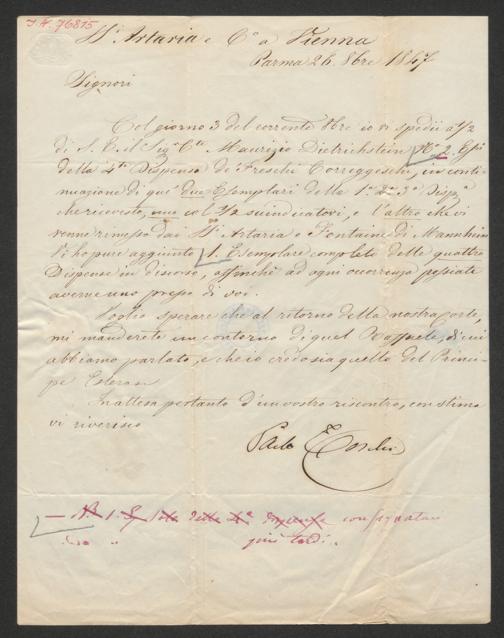 I. N. 76815
Sri. Artaria e Co. a Vienna
Parma 26. 8bre 1847
Signori
Col giorno 3 del corrente 8bre io vi spedii a ½
di S. E. il Sigr. Cte. Maurizio Dietrichstein No. 2. Espi
della 4ta Dispensa de' Freschi Correggeschi, in conti-
nuazione di que' due Esemplari della 1a 2a 3a Dispa
che riceveste, uno col ½ suindicatovi, e l'altro che vi
venne rimesso dai Sri. Artaria e Fontaine di Mannheim
Vi ho pure aggiunto 1. Esemplare completo delle quattro
Dispense in discorso, affinchè ad ogni occorrenza possiate
averne uno presso di voi.
Voglio sperare che al ritorno della nostra Corte,
mi manderete un contorno di quel Raffaele, di cui
abbiamo parlato, e che io credo sia quello del Princi-
pe Esteras
In attesa pertanto d'un vostro riscontro, con stima
vi riverisco
Paolo Toschi
1 della 4a Dispensa
più tardi